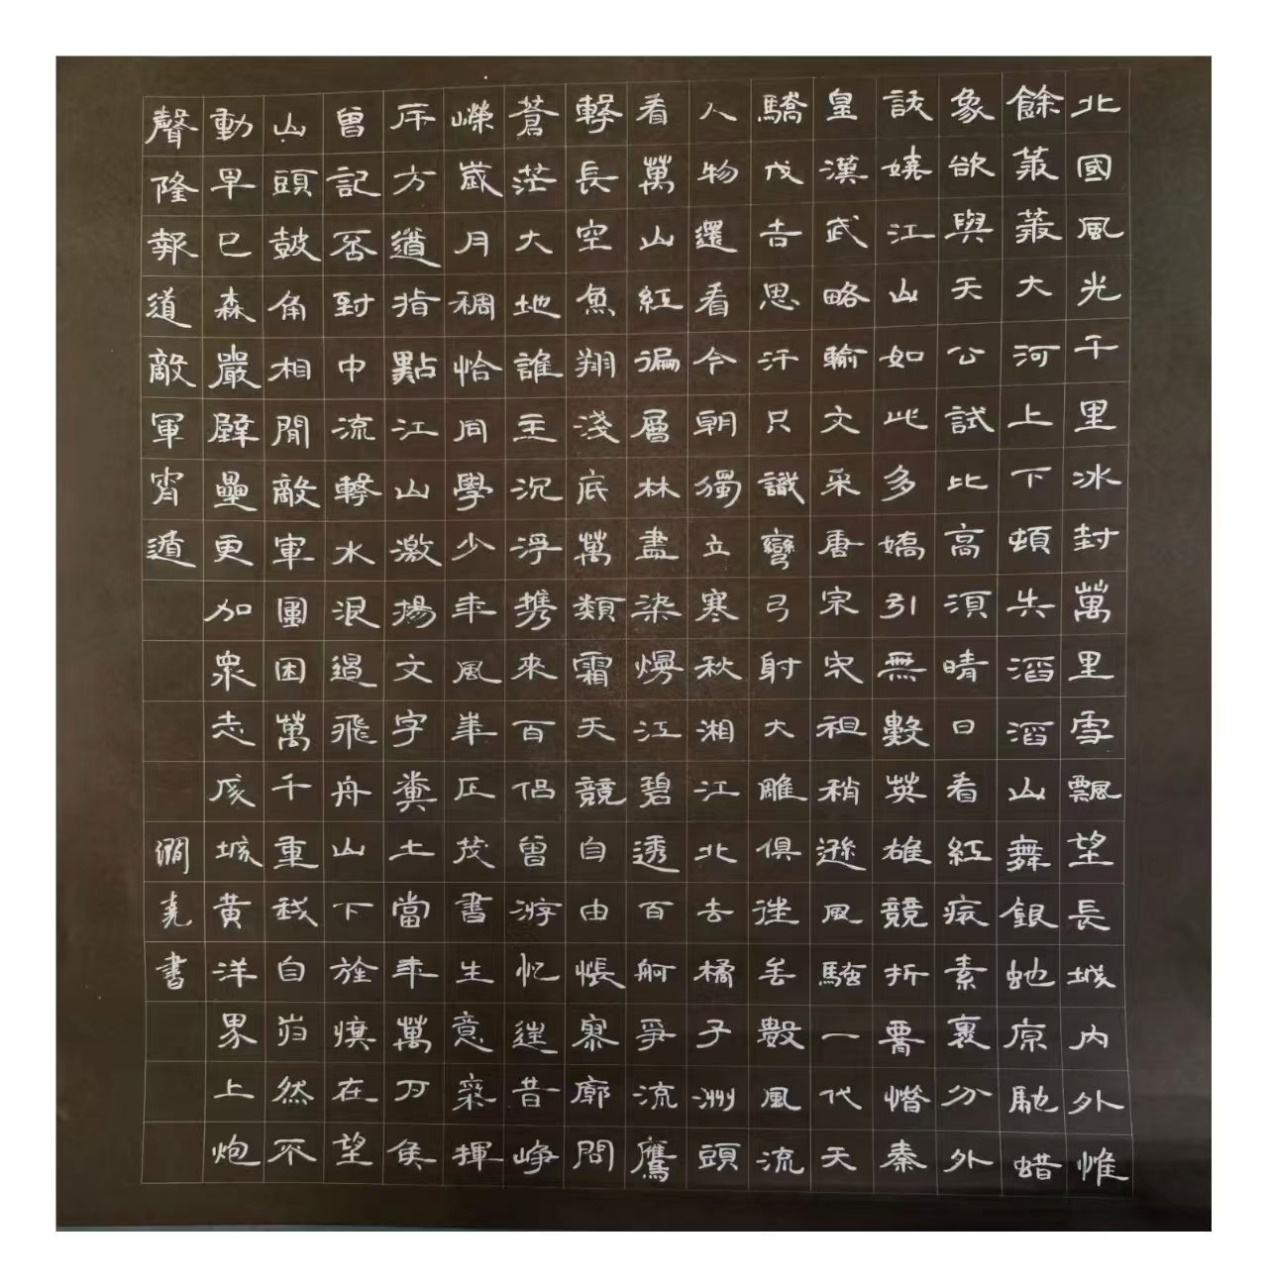 北國風光千里冰封萬里雪飄望長城内外惟
餘莽莽大河上下頓失滔滔山舞銀蛇原馳蜡
象欲與天公試比高須晴日看紅妝素裹分外
訞嬈江山如此多嬌引無數英雄競折腰惜秦
皇漢武略輸文采唐宗宋祖稍遜風騷一代天
驕成吉思汗只識彎弓射大雕俱往矣數風流
人物還看今朝獨立寒秋湘江北去橘子洲頭
看萬山紅遍層林盡染熳江碧透百舸爭流鷹
擊長空魚翔淺底萬類霜天競自由悵寥廓問
蒼茫大地誰主沉浮携來百侣曾游忆往昔崢
嶸歲月稠恰同學少年風華正茂書生意氣揮
斥方遒指點江山激揚文字糞土當年萬户侯
曾記否到中流擊水浪遏飛舟山下旌旗在望
山頭鼓角相聞敵軍圍困萬千重我自巋然不
動早已森嚴壁壘更加衆志成城黃洋界上炮
聲隆報道敵軍宵遁
澗堯書